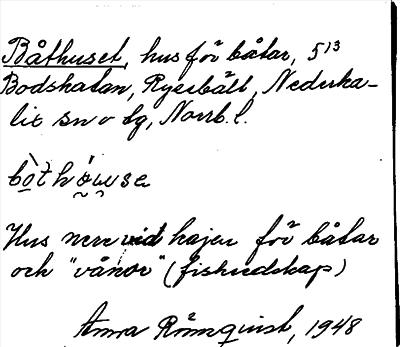 Båthuset, hus för båtar, 513
Bodskatan, Ryssbält, Nederka-
lix sn o tg, Norrb. l.
bòthówsa
Hus nere vid kajen för båtar
och "vånor" (fiskredskap)
Anna Rönnquist, 1948